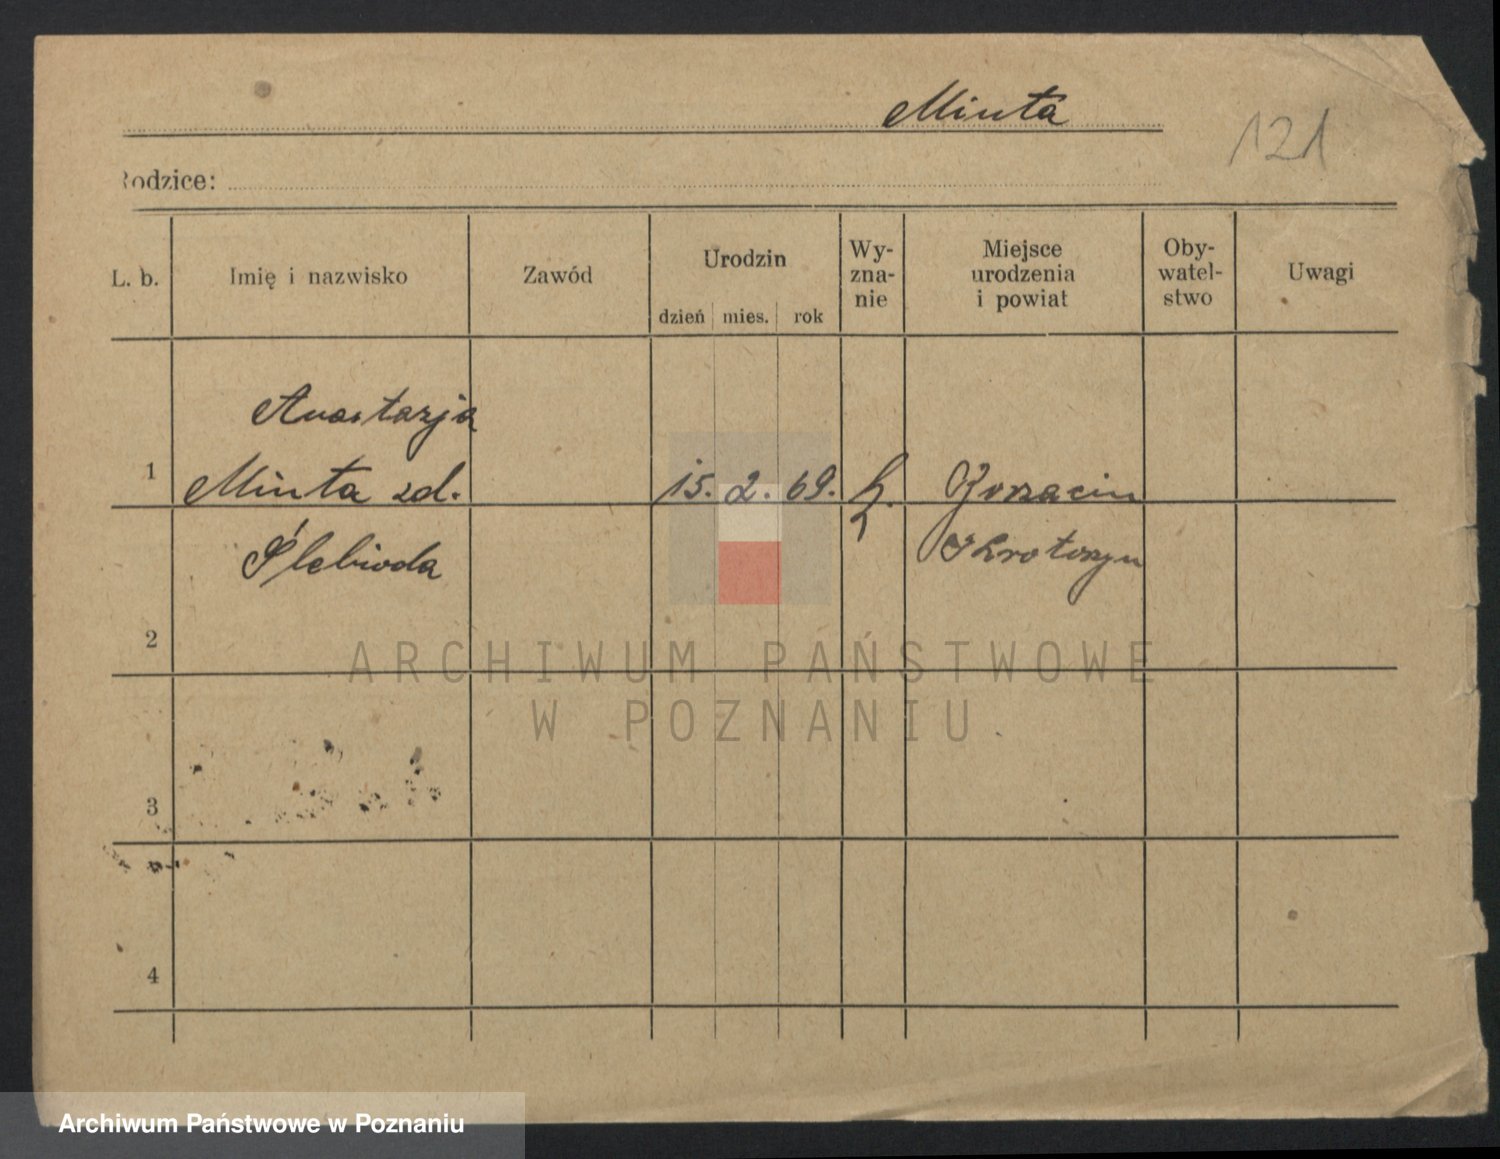 Minta
121
Rodzice:
L. b.
Imię i nazwisko
Zawód
Urodzin
dzień mies. rok
Wy-
zna-
nie
Miejsce
urodzenia
i powiat
Oby-
watel-
stwo
Uwagi
Anastazja
1 Minta zd. 15. 2. 69.
Ślebioda Krotoszyn
2
3
4
ARCHIWUM PAŃSTWOWE
W POZNANIU
Archiwum Państwowe w Poznaniu